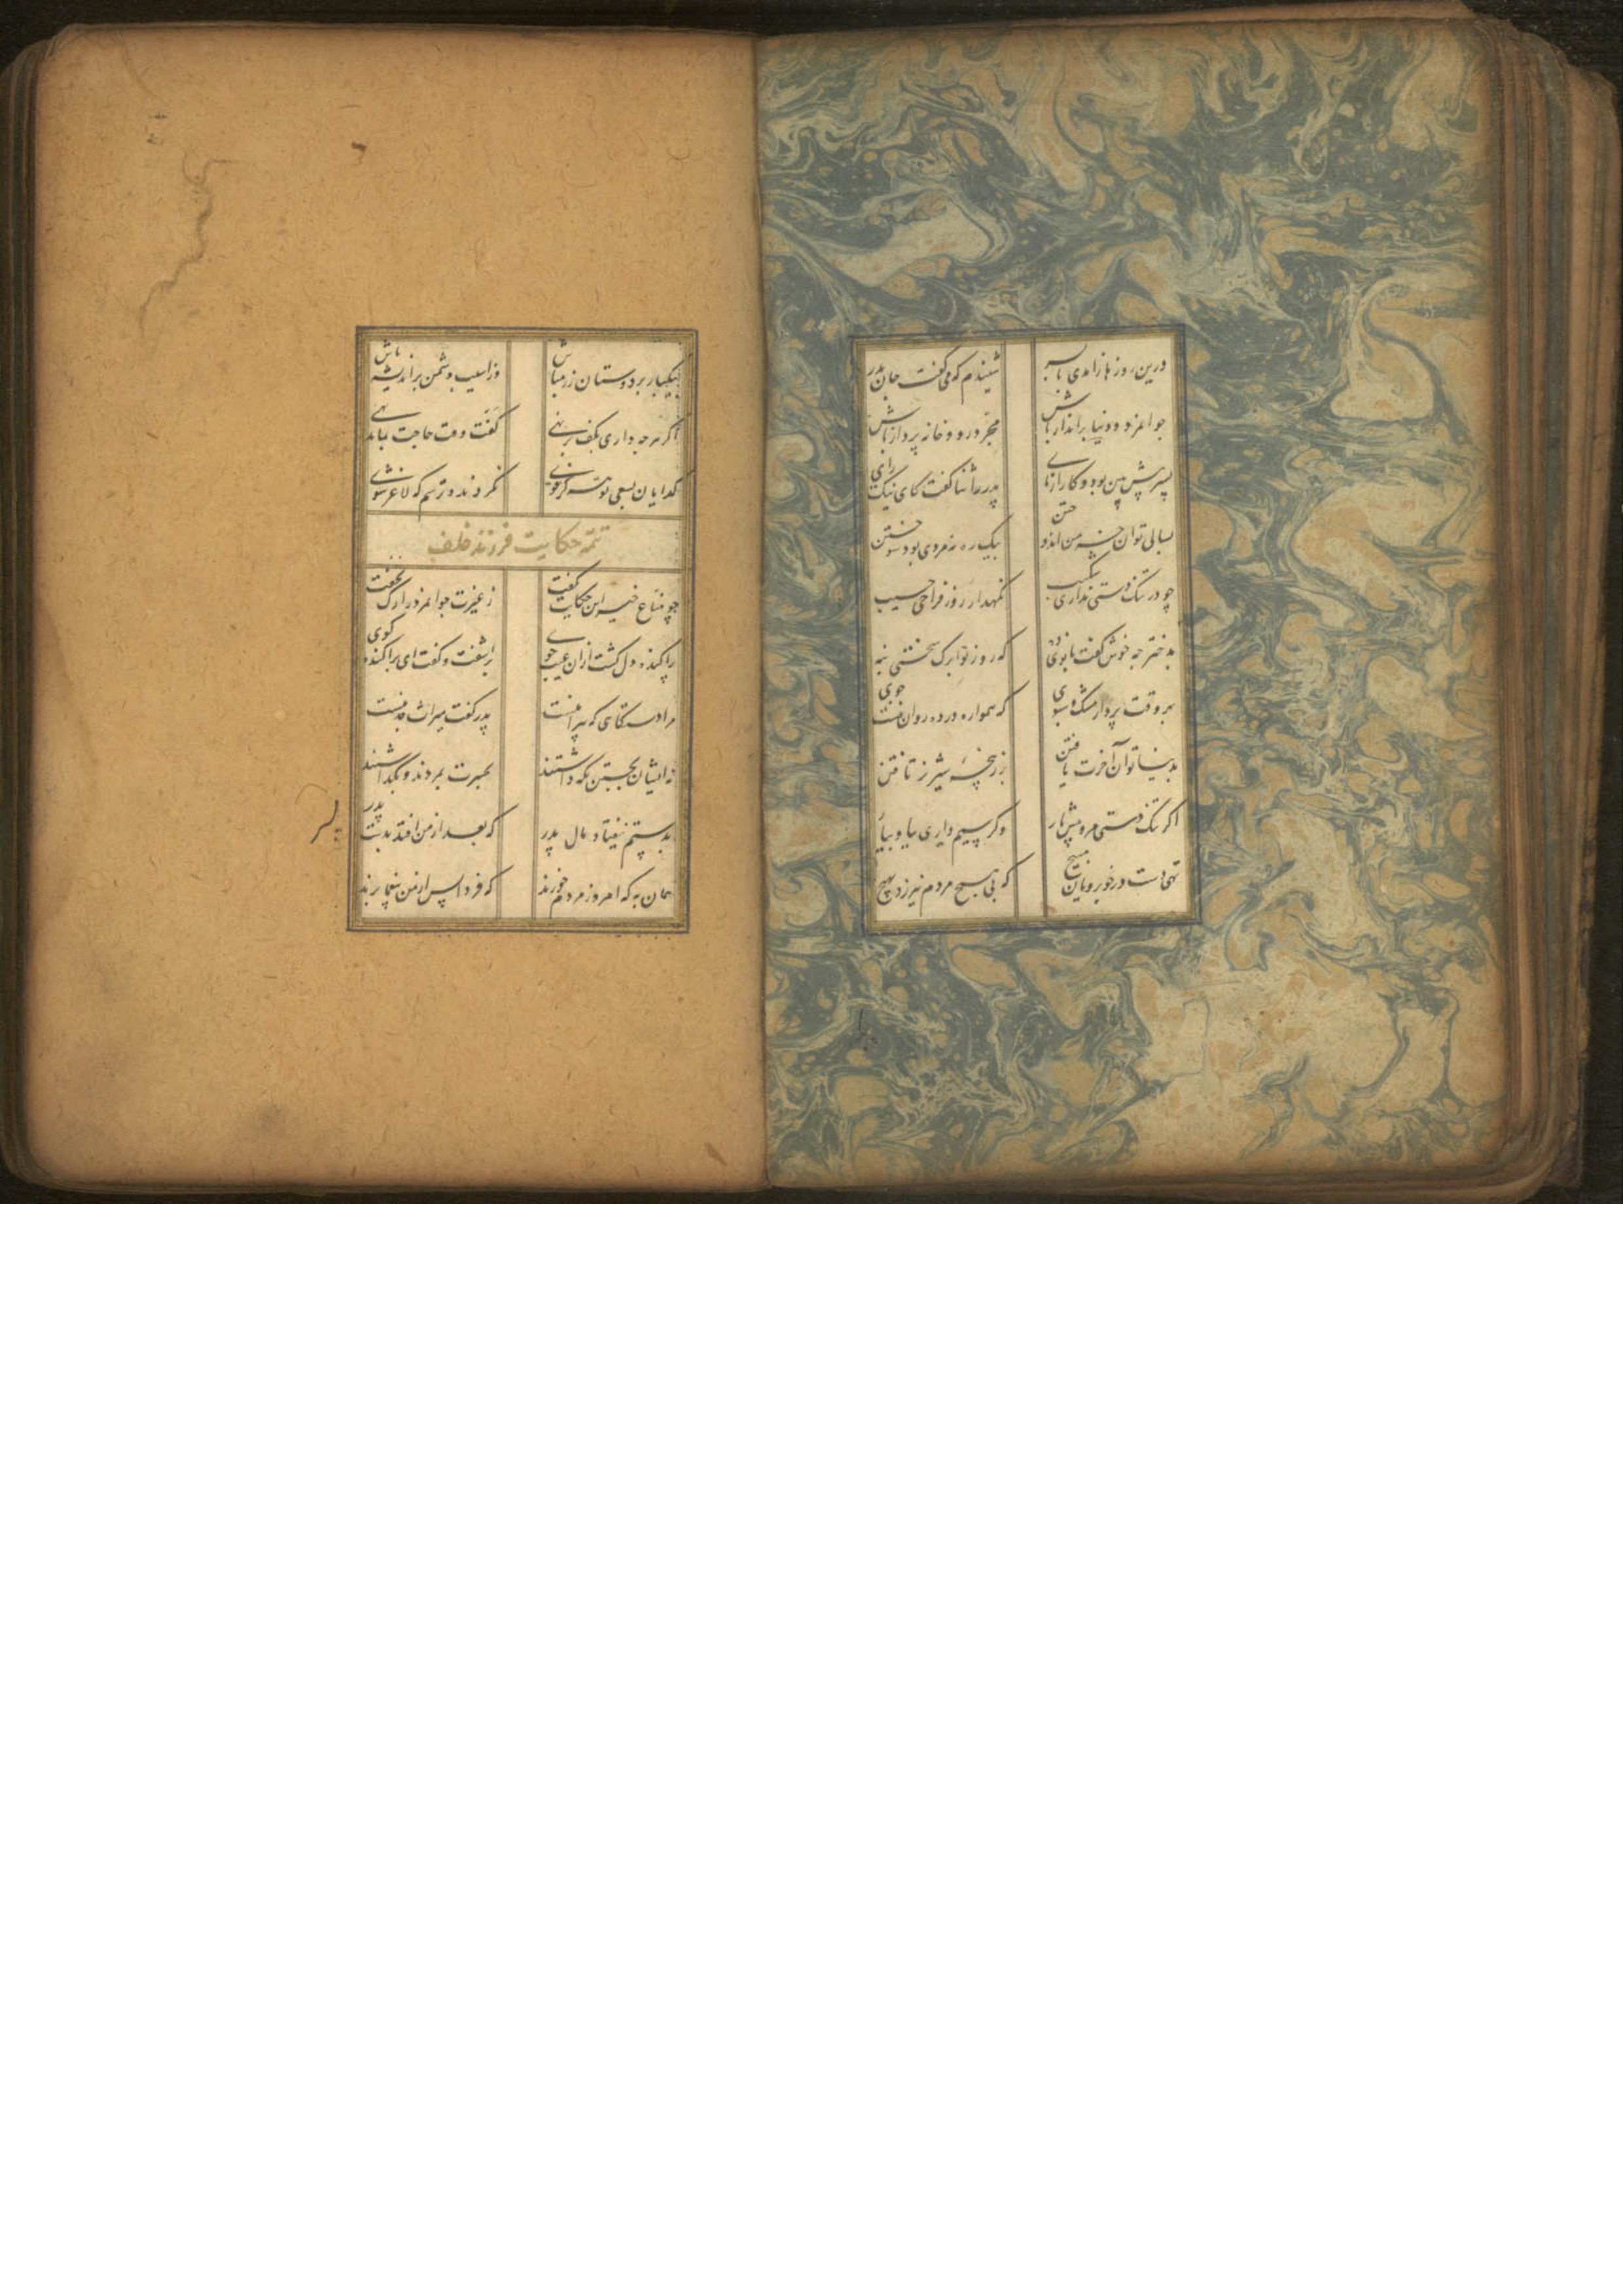 درین روزها زاهدی با پسر شنیدم که می گفت جان پدر
جوانمرد و دنیا برانداز باش مجرد رو و خانه پرداز باش
پسر پیش بین بود و کارآزمای پدر را ثنا کفت کای نیک رای
بسالی توان خرمن اندوختن بیک ره نه مردی بود سوختن
چو در تنک دستی نداری شکیب نکهدار روز فراخی حسیب
بدختر چه خوش کفت بانوی ده که روز نوا برک سختی بنه
بهر وقت پردار مشک و سبوی که همواره در ده روان نیست جوی
بدنیا توان آخرت یافتن بزر پنجه شیر نر تافتن
اکر تنک دستی مرو پیش یار وکر سیم داری بیا و بیار
تهی دست در خوبرویان مپیچ که بی هیچ مردم نیرزد بهیچ
بیکبار بر دوستان زر مپاش وز آسیب دشمن براندیشه باش
اکر هرچه داری بکف برنهی کفت وقت حاجت بماند تهی
کدایان بسعی تو هرکز قوی نکردند و ترسم که لاغر شوی
تتمه حکایت فرزند خلف
چو مناع خیر این حکایت بکفت ز غیرت جوانمرد را رک نخفت
پراکنده دل کشت ازان عیب جوی برآشفت و کفت ای پراکنده کوی
مرا دستکاهی که پیرامنست پدر کفت میراث جد منست
نه ایشان بخست نکه داشتند بحسرت بمردند و بکذاشتند
بدستم نیفتاد مال پدر که بعد از من افتد بدست پدر
پسر
همان به که امروز مردم خورند که فردا پس از من بیغما برند